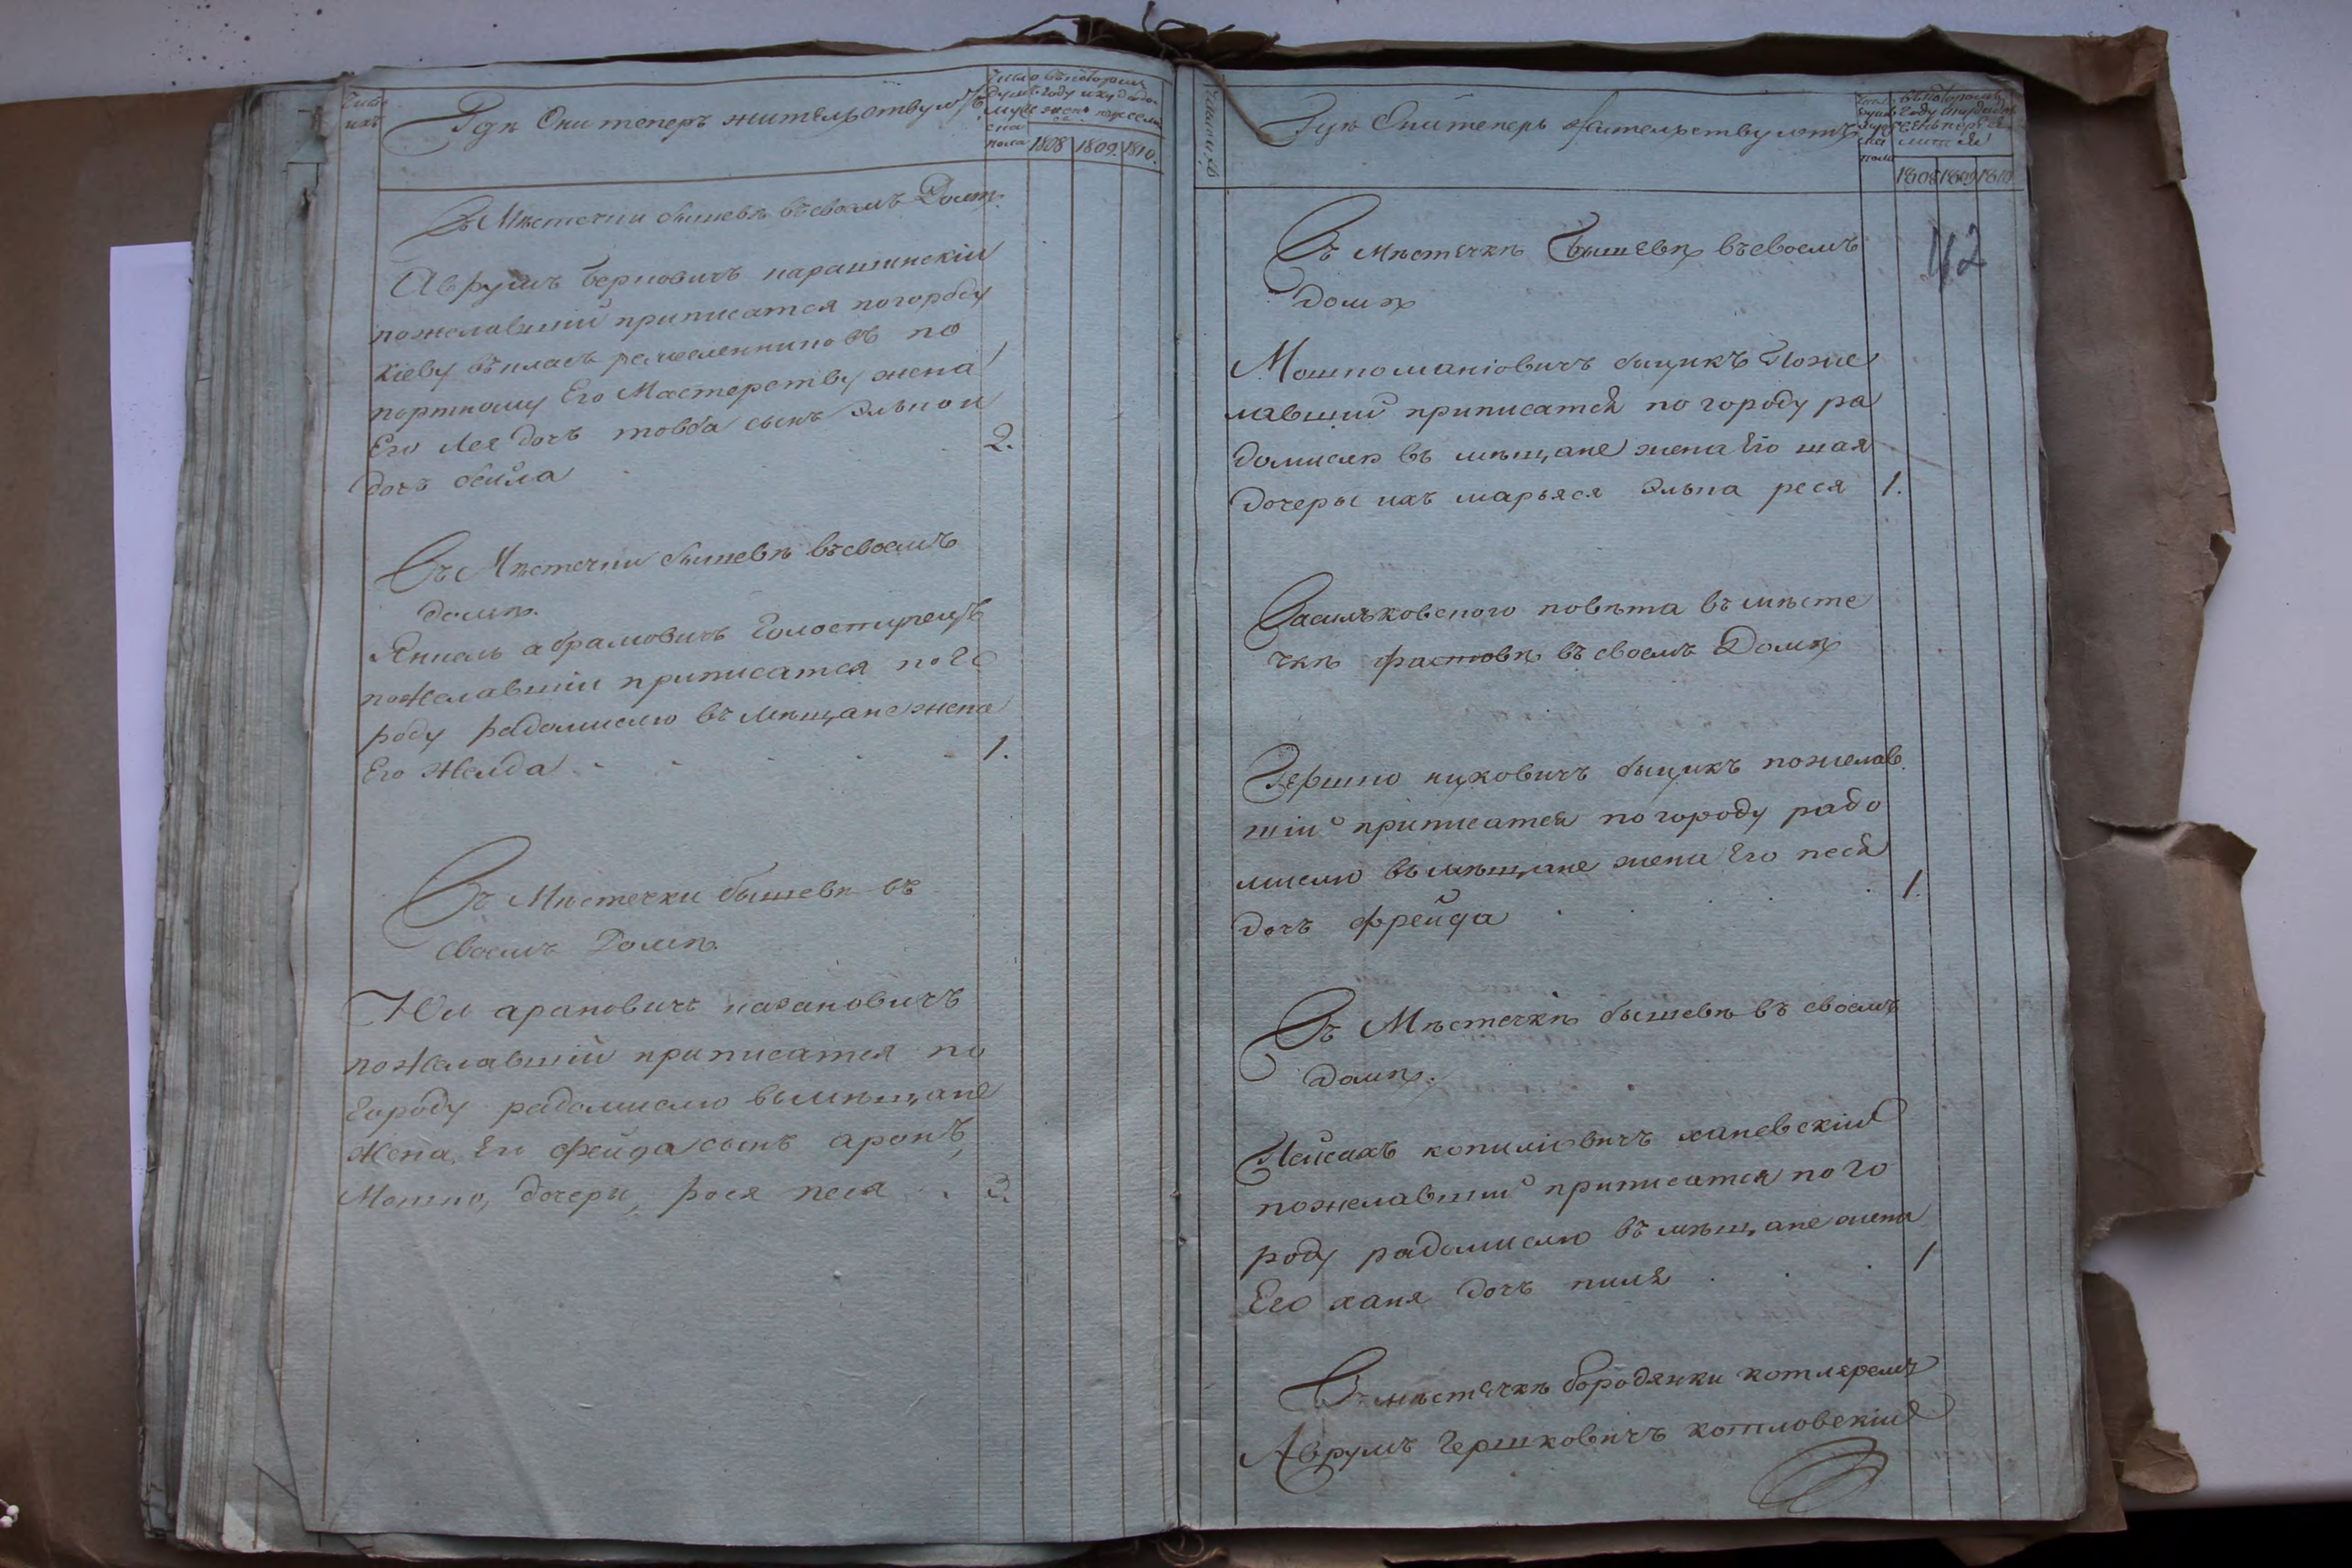 Число
ихъ
Гдѣ Они теперъ жителъствуютъ
Число
душъ
муже
ска
пола
въ которомъ
году и куда до
1808 1809. 1810.
Въ Мѣстечки бышевѣ въ своемъ Домѣ.
Аврумъ берковичъ парашинскій
пожелавшій приписатся по городу
Кіеву въ класъ ремесленниковъ по
портному Его Мастерству жена
Его Лея дочъ товба сынъ Элькон
дочъ бейла 2.
Въ Мѣстечки бышевѣ въ своемъ
домѣ.
Янкель абрамовичъ Голоступецъ
пожелавшій приписатся по го
роду радомислю въ мѣщане жена
Его желда 1.
Въ Мѣстечки бышевѣ въ
своемъ Домѣ.
Юл ароновичъ казановичъ
пожелавшій приписатся по
городу радомислю въ мѣщане
жена Его фейга сынъ аронъ,
Мошко, дочеры, рося песя 3.
Число ихъ
Гдѣ Они теперь жителъствуютъ
Число
душъ
муже
ска
пола
въ которомъ
году
1808 1809 1810
42
Въ мѣстечкѣ Бышевѣ въ своемъ
домѣ
Мошко маніовичъ быцикъ Поже
лавшій приписатся по городу ра
домислю въ мѣщане жена Его шая
дочеры ихъ марьяся элька реся 1.
Василъковского повѣта въ мѣсте
чкѣ фастовѣ въ своемъ Домѣ
Гершко ицковичъ быцикъ пожелав
шій приписатся по городу радо
мислю въ мѣщане жена Его песя
дочъ фрейда 1.
Въ Мѣстечкѣ бышевѣ въ своемъ
домѣ.
Пейсахъ копиліовичъ ханевскій
пожелавшій приписатся по го
роду радомислю въ мѣщане жена
Его ханя дочъ пиля 1
Въ мѣстечкѣ бородянки котляремъ
Аврумъ Гершковичъ котловскій